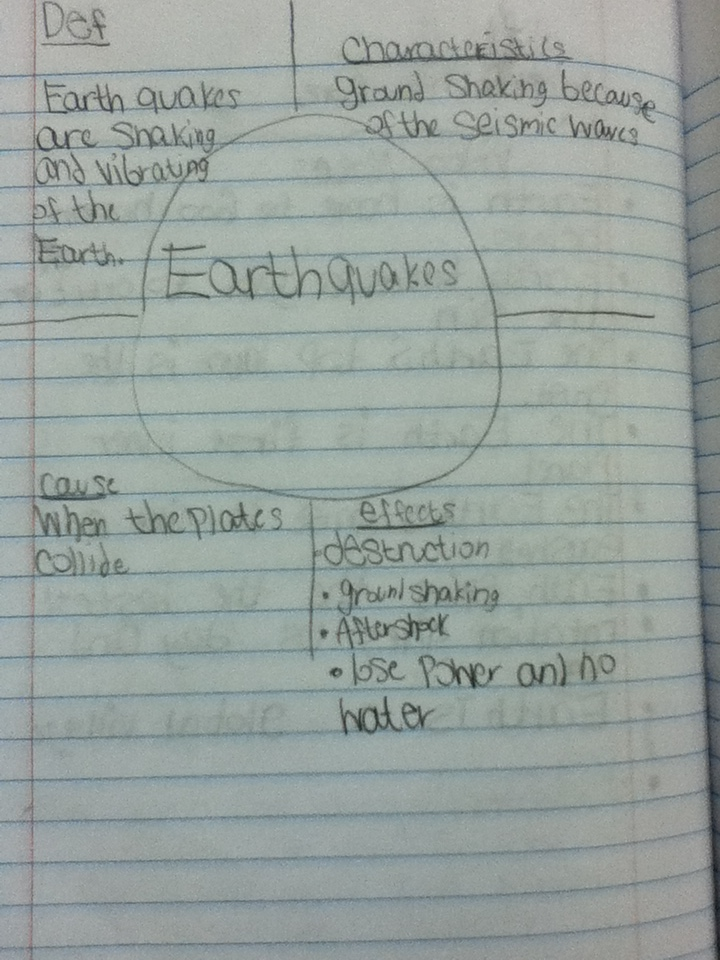 Def
Earth quakes
are Shaking
and vibrating
of the
Earth.
Characteristics
ground Shaking because
of the Seismic waves
Earthquakes
cause
When the plates
collide
effects
destruction
• ground shaking
• Aftershock
• lose Power and no
water